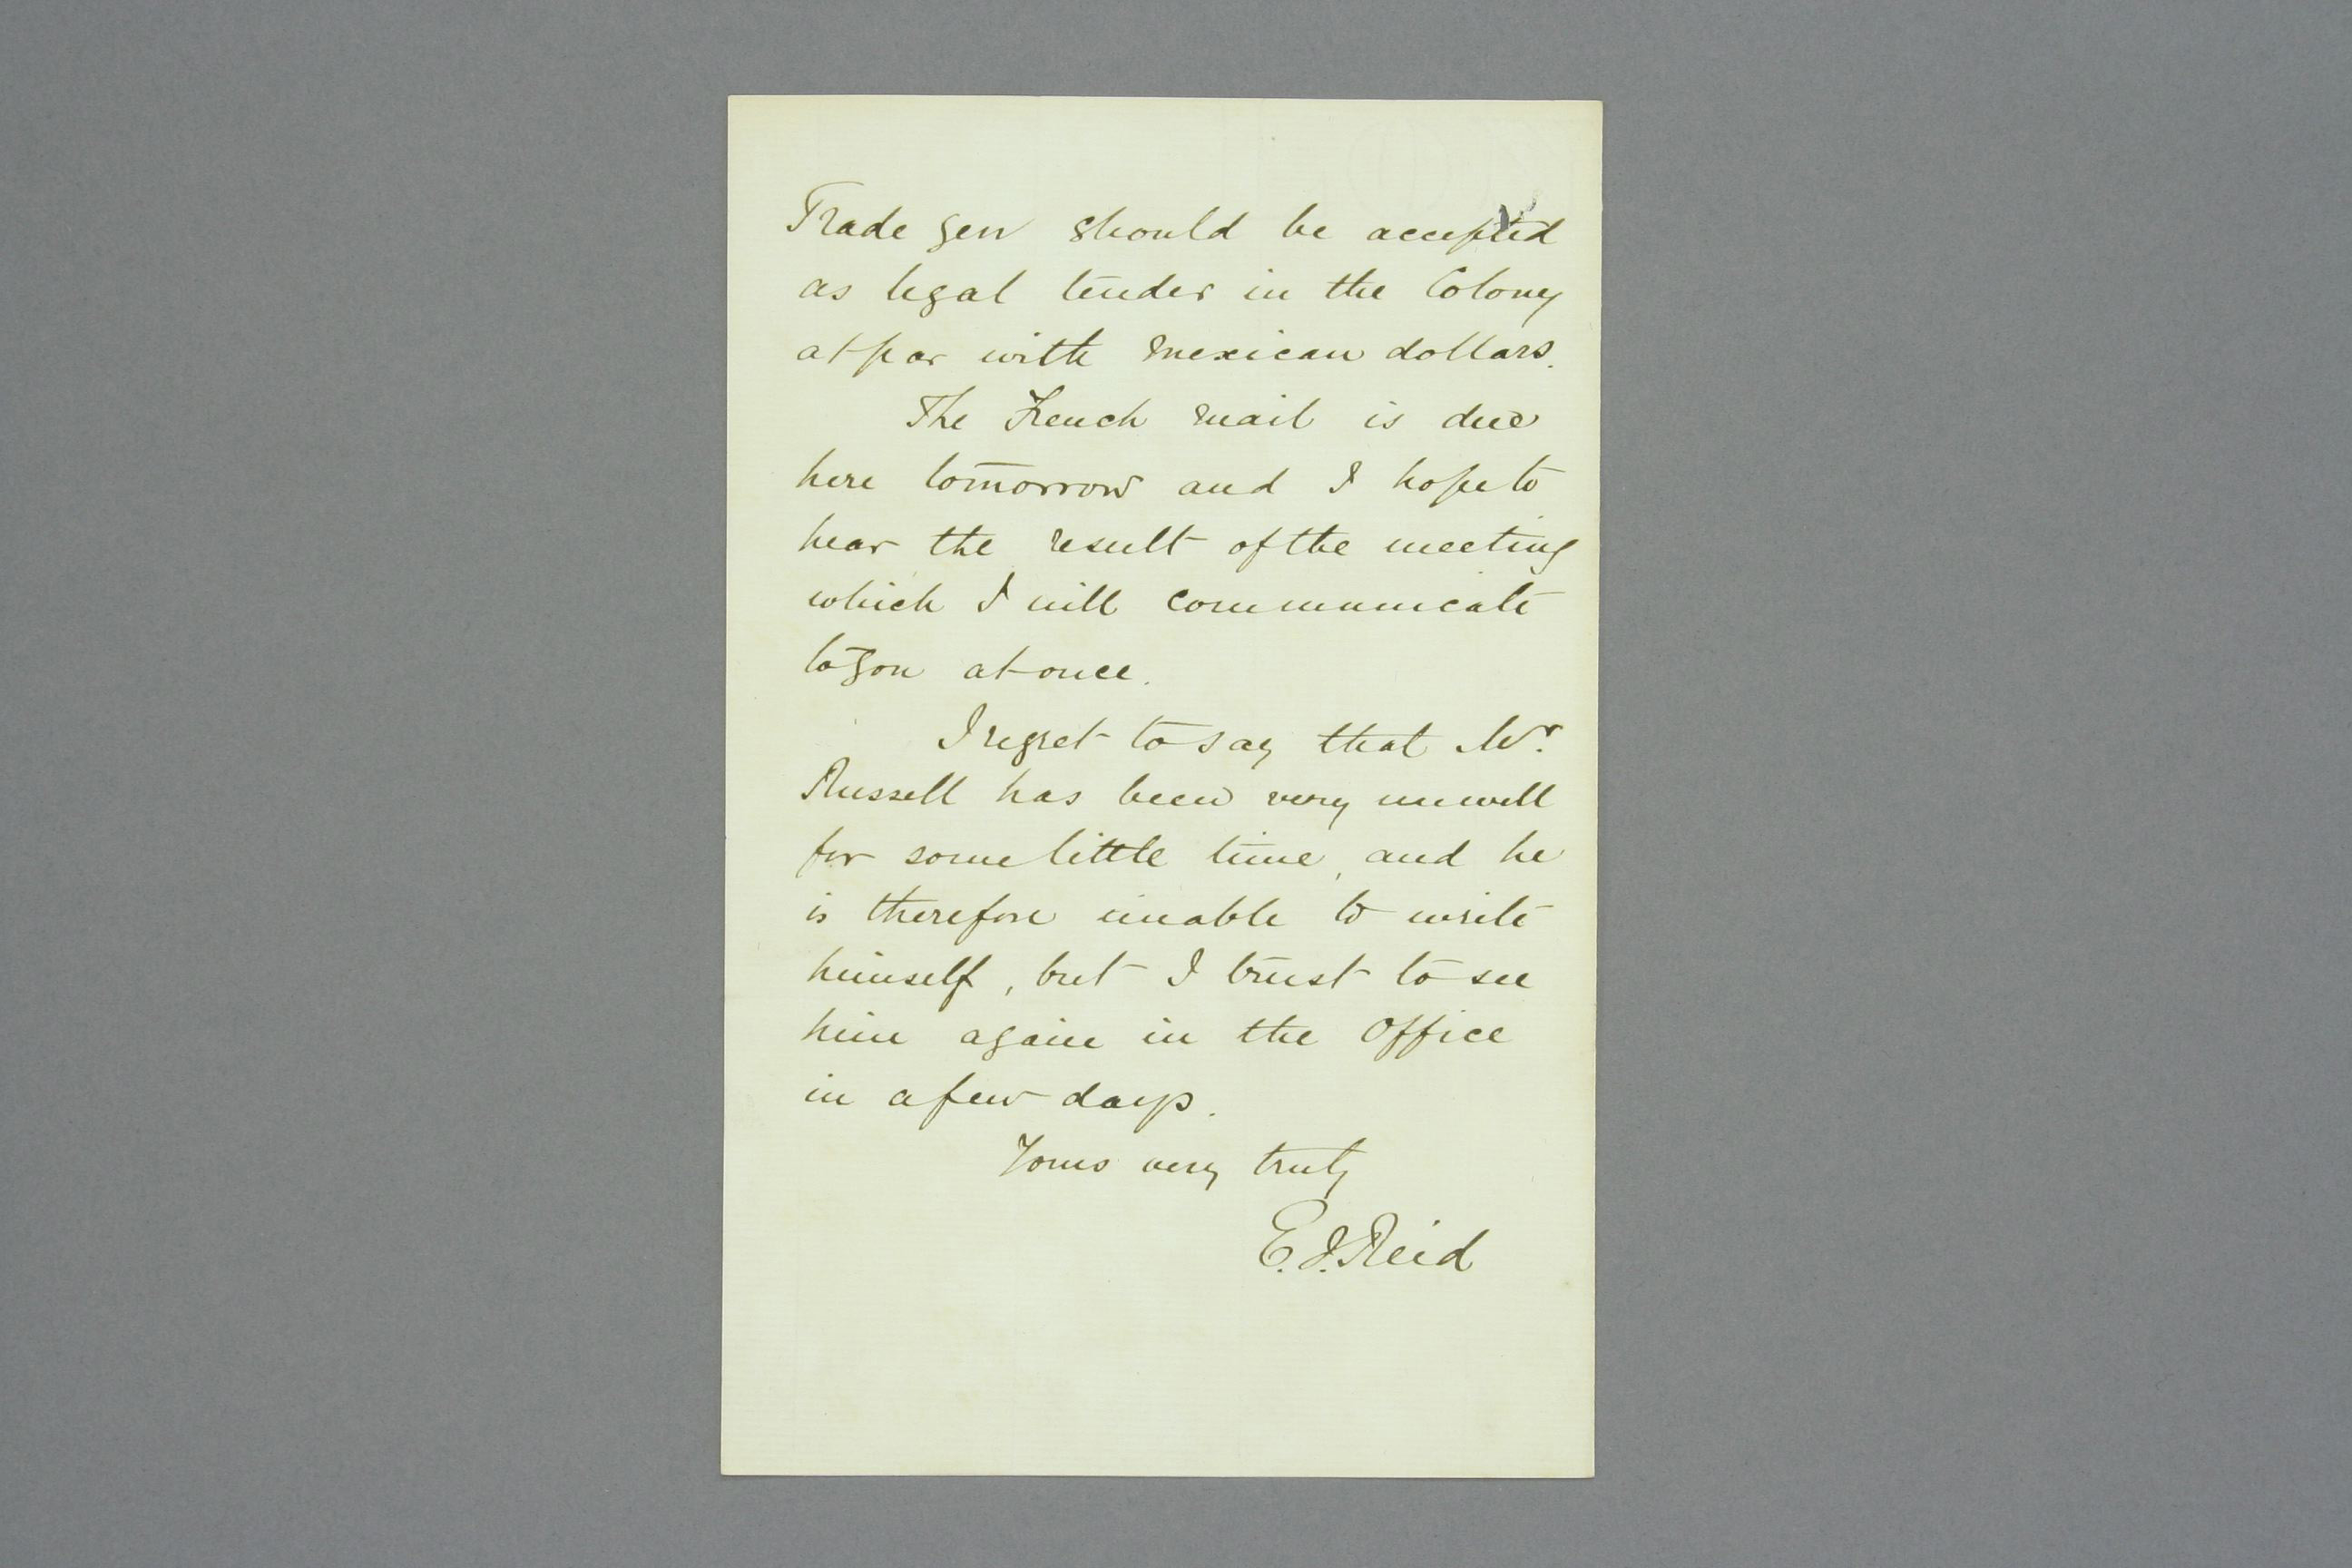 Trade yen should be accepted
as legal tender in the Colony
at par with Mexican dollars.
The French mail is due
here tomorrow and I hope to
hear the result of the meeting
which I will communicate
to you at once.
I regret to say that Mr.
Russell has been very unwell
for some little time, and he
is therefore unable to write
himself, but I trust to see
him again in the Office
in a few days.
Yours very truly
E. J. Reid